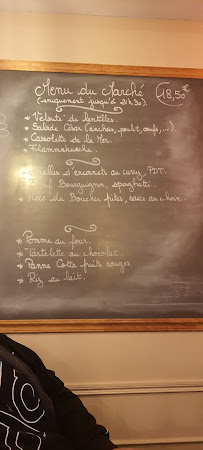 Menu du Marché 18,50€
(uniquement jusqu'à 21h30).
* Velouté de lentilles.
* Salade César (anchois, poulet, œufs, ...)
* Cassolette de la Mer.
* Flammekueche.
d'encornets au curry, PDT.
Bourguignon, spaghetti.
* Pièce du Boucher frites, sauce au choix.
* Pomme au four.
* Tartelette au chocolat.
* Panna Cotta fruits rouges.
* Riz au lait.